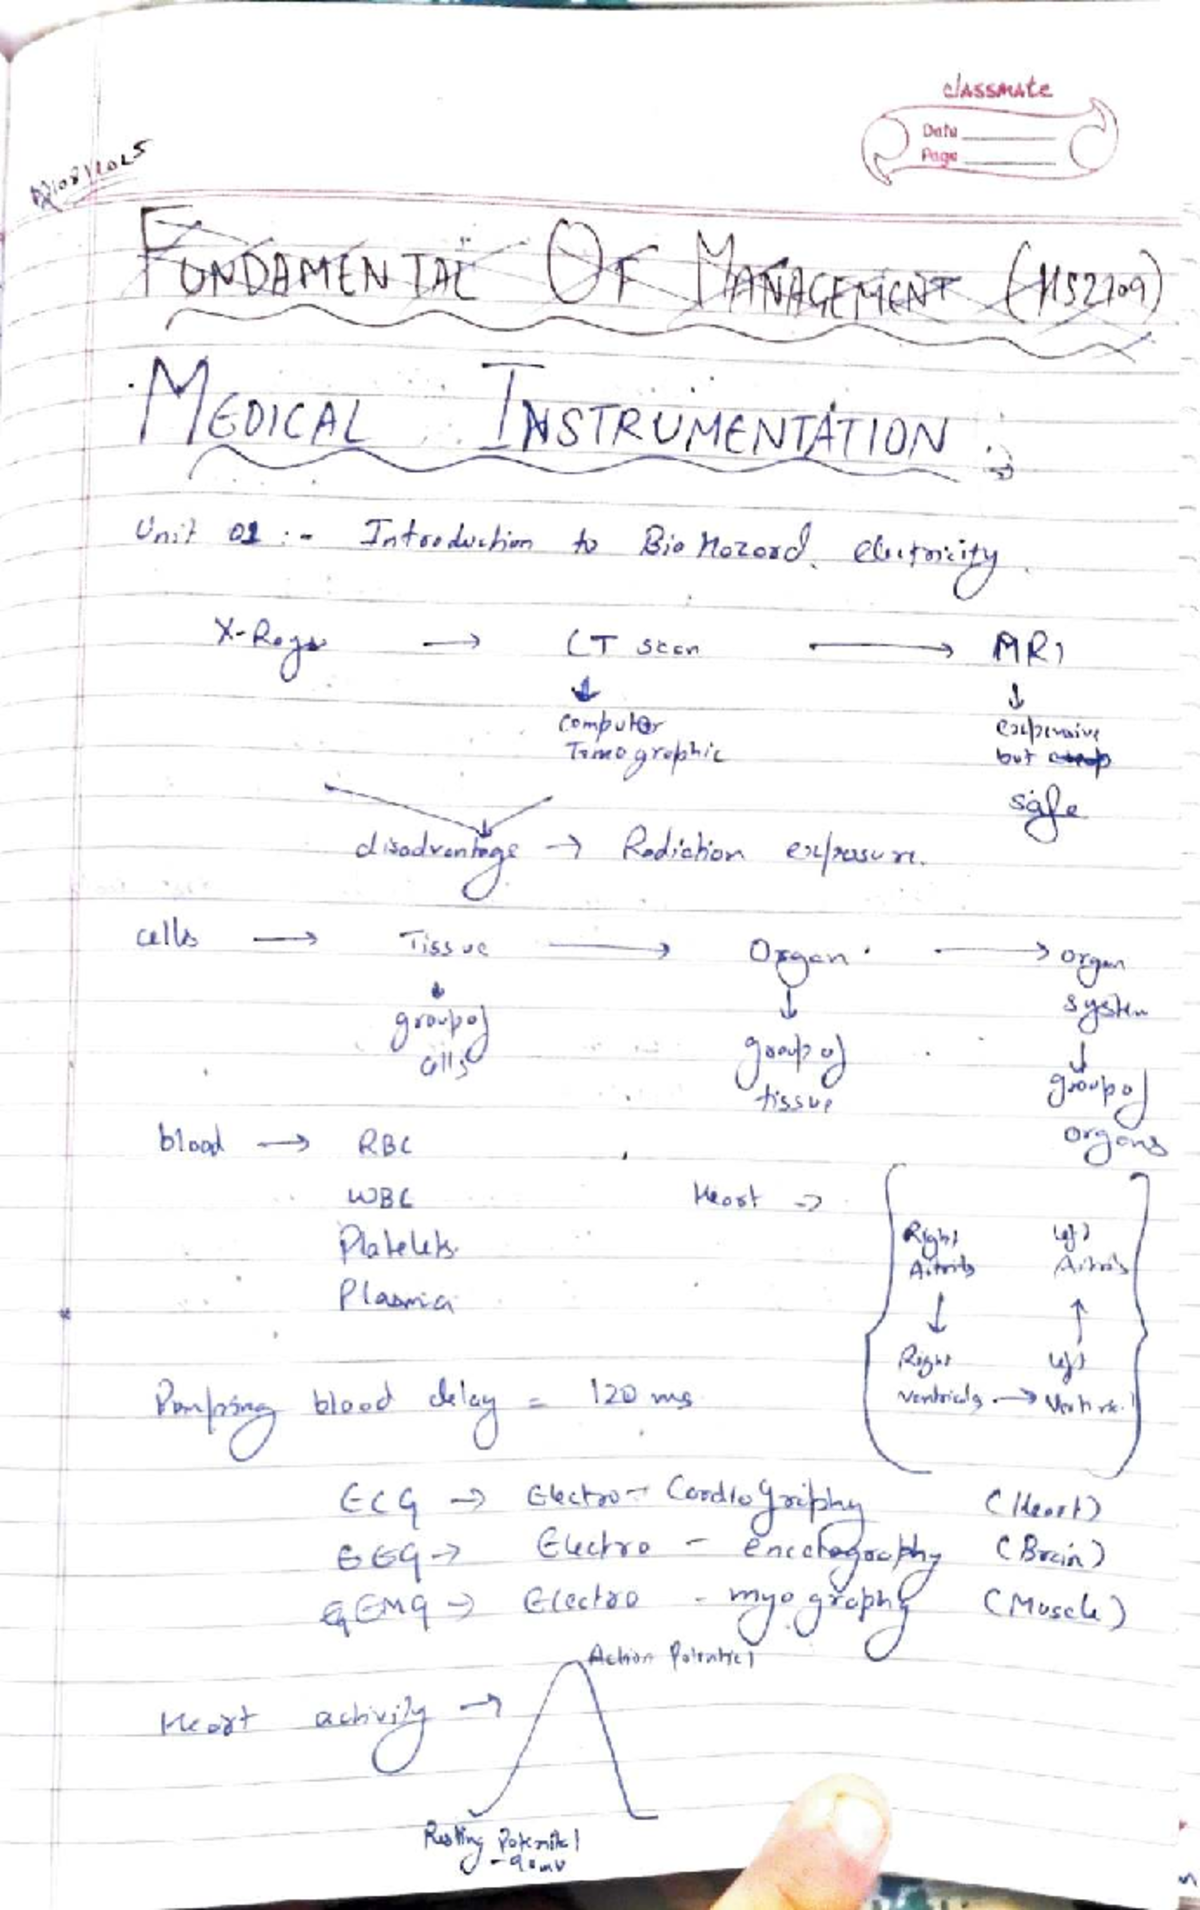 classmate
Date
Page
02/08/2025
FUNDAMENTAL OF MANAGEMENT (HS2109)
MEDICAL INSTRUMENTATION :
Unit 01 :- Introduction to Bio Hazard. Electricity.
X-Rays → CT scan → MRI
↓ ↓
computer expensive
Tomographic but cheap
safe
disadvantage → Radiation exposure.
cells → Tissue → Organ → organ
system
↓ ↓ ↓
group of group of group of
cells tissue organs
blood → RBC
WBC Heart →
Platelets
Plasma
Right Left
↓ ↑
Right Left
→
Pumping blood delay = 120 ms
ECG → Electro - Cardiography (Heart)
EEG → Electro - (Brain)
EMG → Electro - myography (Muscle)
Action Potential
Heart activity →
Resting Potential
-90mv